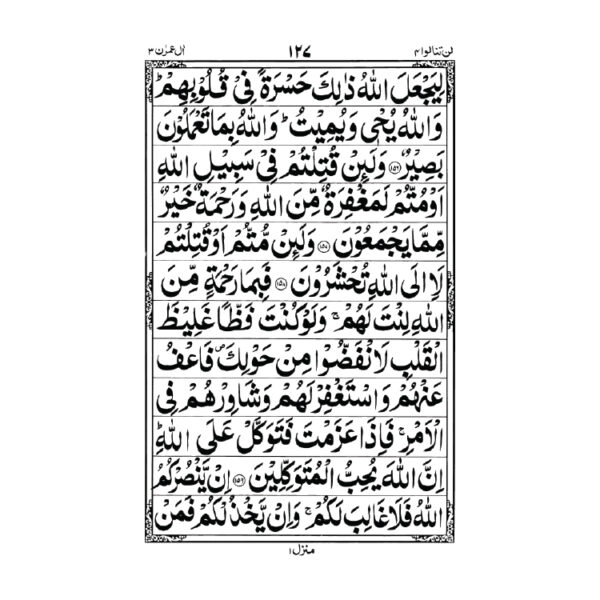 لن تنالوا ۴ ۱۲۷ اٰل عمرٰن ۳
لِيَجْعَلَ اللّٰهُ ذٰلِكَ حَسْرَةً فِيْ قُلُوْبِهِمْ ؕ
وَاللّٰهُ يُحْيٖ وَيُمِيْتُ ؕ وَاللّٰهُ بِمَا تَعْمَلُوْنَ
بَصِيْرٌ ﴿۱۵۶﴾ وَلَئِنْ قُتِلْتُمْ فِيْ سَبِيْلِ اللّٰهِ
اَوْ مُتُّمْ لَمَغْفِرَةٌ مِّنَ اللّٰهِ وَرَحْمَةٌ خَيْرٌ
مِّمَّا يَجْمَعُوْنَ ﴿۱۵۷﴾ وَلَئِنْ مُّتُّمْ اَوْ قُتِلْتُمْ
لَاۡ اِلَى اللّٰهِ تُحْشَرُوْنَ ﴿۱۵۸﴾ فَبِمَا رَحْمَةٍ مِّنَ
اللّٰهِ لِنْتَ لَهُمْ ۚ وَلَوْ كُنْتَ فَظًّا غَلِيْظَ
الْقَلْبِ لَانْفَضُّوْا مِنْ حَوْلِكَ ۪ فَاعْفُ
عَنْهُمْ وَاسْتَغْفِرْ لَهُمْ وَشَاوِرْهُمْ فِي
الْاَمْرِ ۚ فَاِذَا عَزَمْتَ فَتَوَكَّلْ عَلَى اللّٰهِ ؕ
اِنَّ اللّٰهَ يُحِبُّ الْمُتَوَكِّلِيْنَ ﴿۱۵۹﴾ اِنْ يَّنْصُرْكُمُ
اللّٰهُ فَلَا غَالِبَ لَكُمْ ۚ وَاِنْ يَّخْذُلْكُمْ فَمَنْ
منزل ۱